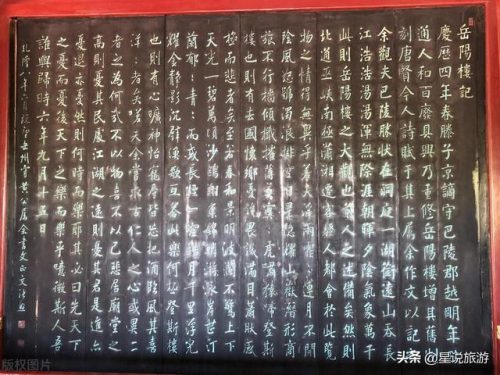 岳陽樓記
慶歷四年春滕子京謫守巴陵郡越明年政
通人和百廢具興乃重修岳陽樓增其舊
刻唐賢今人詩賦于其上屬余作文以記
余觀夫巴陵勝狀在洞庭一湖銜遠山吞長
江浩浩湯湯渾無際涯朝暉夕陰氣象萬千
此則岳陽樓之大觀也前人之述備矣然則
北通巫峽南極瀟湘遷客騷人都會於此覽
物之情得無異乎若夫淫雨霏霏連月不開
陰風怒號濁浪排空日星隱曜山岳潛形商
旅不行檣傾楫摧薄暮冥冥虎嘯猿啼登斯
樓也則有去國懷鄉憂讒畏譏滿目蕭然感
極而悲者矣至若春和景明波瀾不驚上下
天光一碧萬頃沙鷗翔集錦鱗游泳岸芷汀
蘭郁郁青青而或長煙一空皓月千里浮光
耀金靜影沉璧漁歌互答此樂何極登斯樓
也則有心曠神怡寵辱皆忘把酒臨風其喜
洋洋者矣嗟夫余嘗求古仁人之心或異二
者之為何哉不以物喜不以己悲居廟堂之
高則憂其民處江湖之遠則憂其君是進亦
憂退亦憂然則何時而樂耶其必曰先天下
之憂而憂後天下之樂而樂乎噫微斯人吾
誰與歸時六年九月十五日
乾隆八年六月
版权图片
头条 @星说旅游